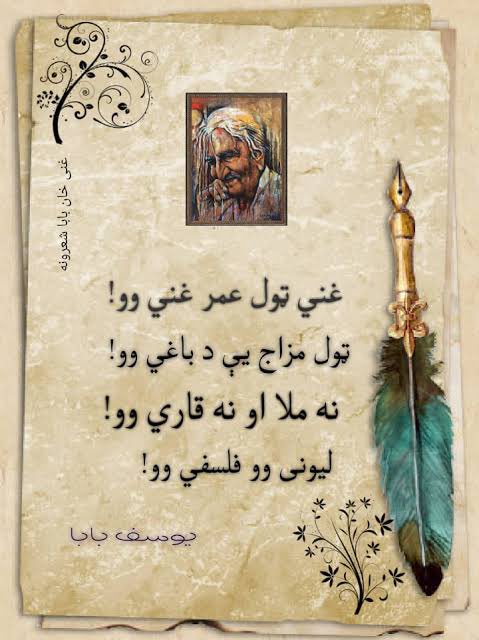 غنی خان بابا شعرونه
غني ټول عمر غني وو!
ټول مزاج يې د باغي وو!
نه ملا او نه قاري وو!
ليونی وو فلسفي وو!
يوسف بابا